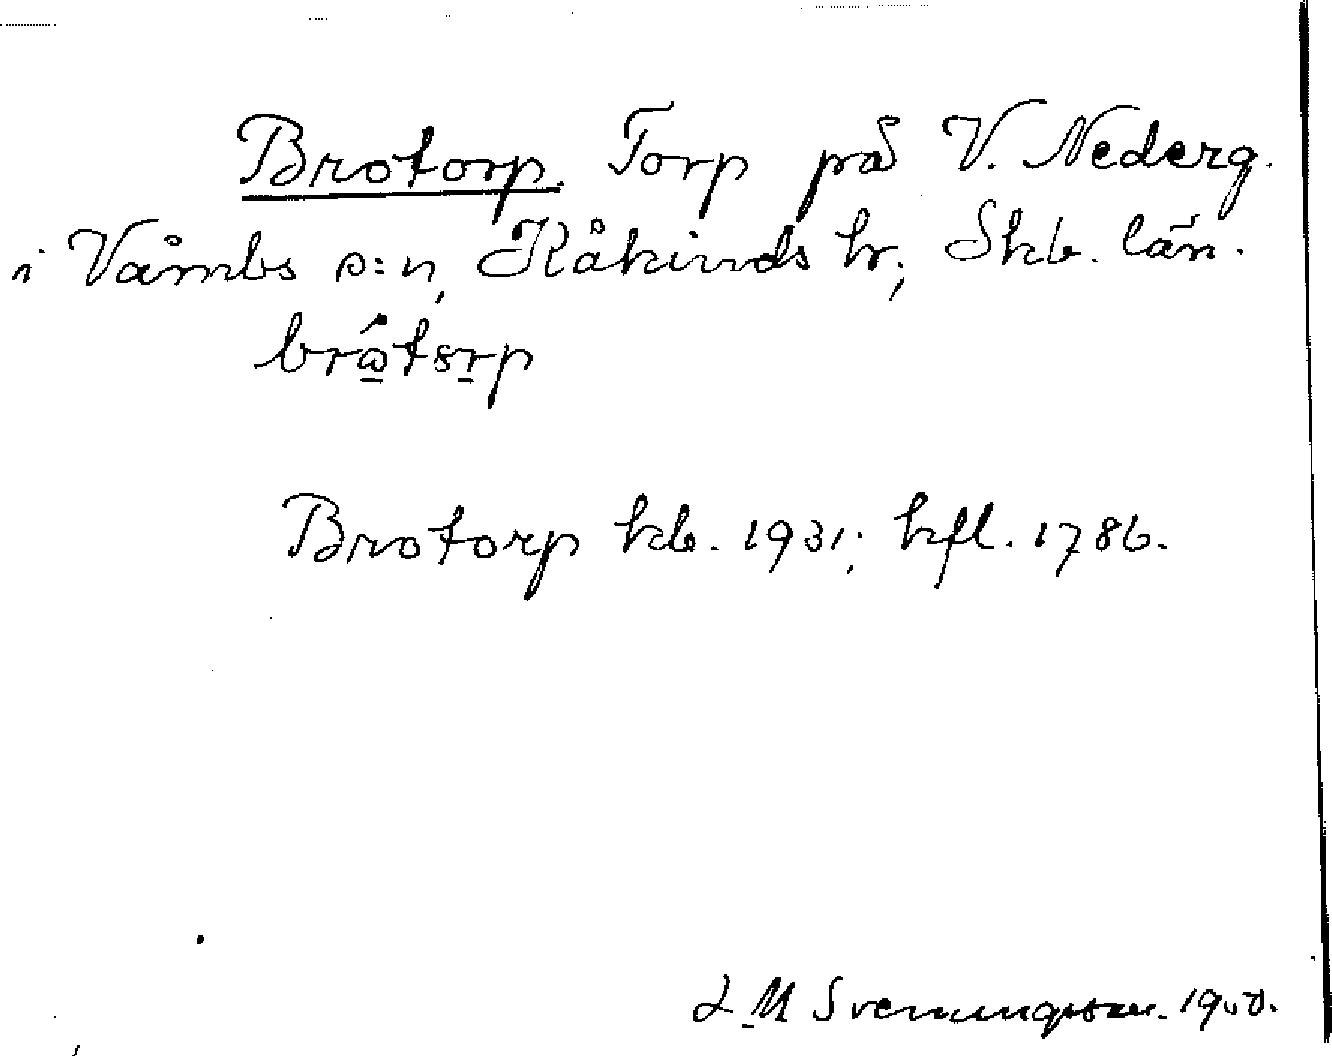 Brotorp. Torp på V. Nederg.
i Våmbs s:n, Kåkinds hr., Skb. län.
Brotorp kb. 1931; hfl. 1786.
L M Svenungsson. 1950.